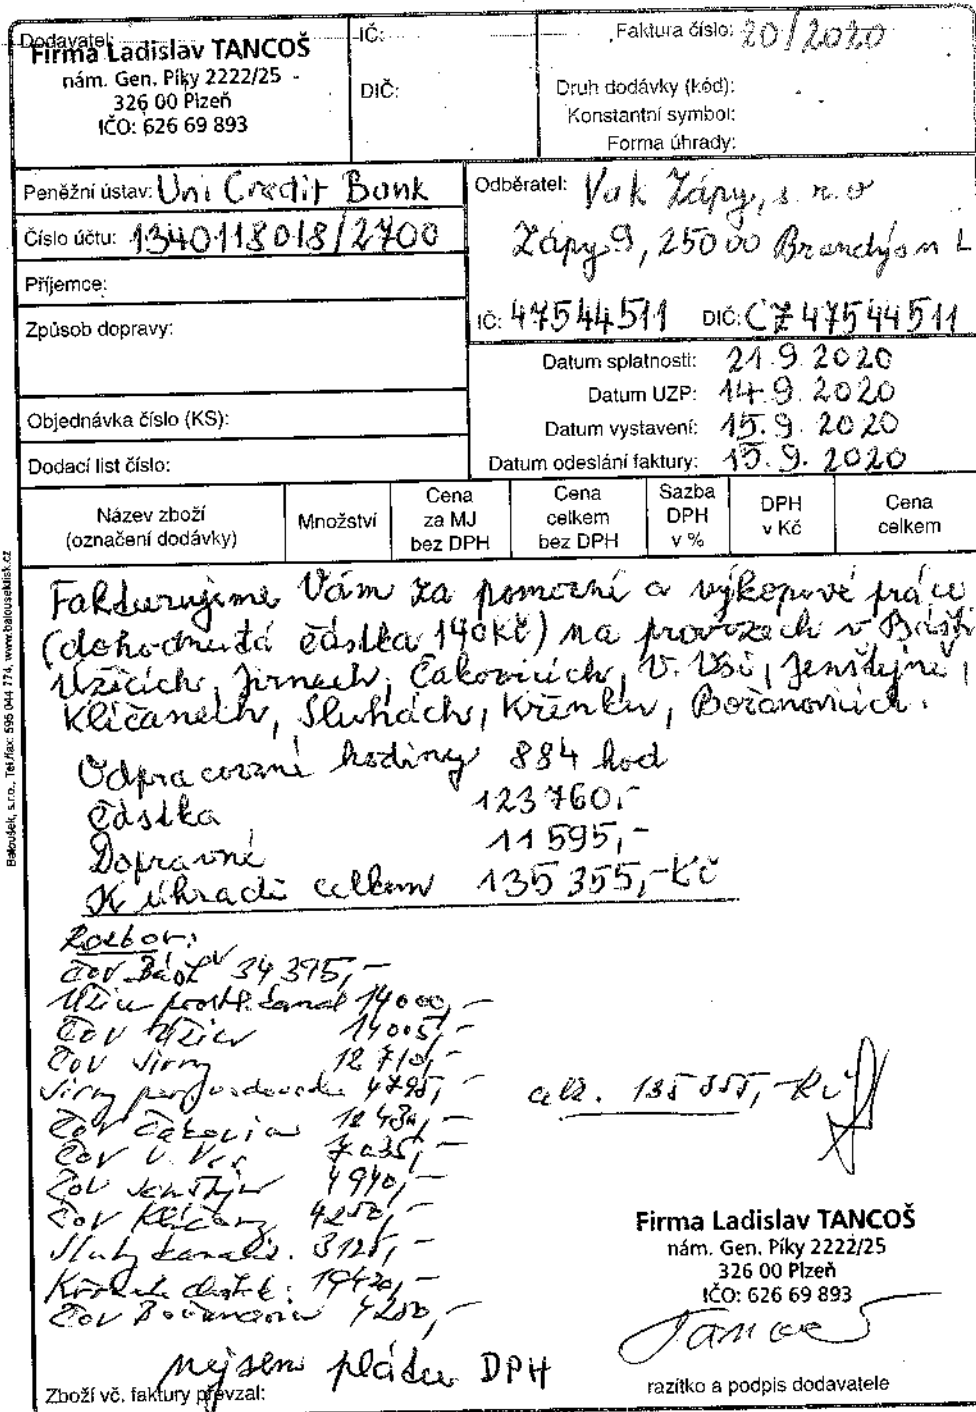 Dodavatel:
Firma Ladislav TANCOŠ
nám. Gen. Píky 2222/25
326 00 Plzeň
IČO: 626 69 893
IČ:
DIČ:
Faktura číslo: 20/2020
Druh dodávky (kód):
Konstantní symbol:
Forma úhrady:
Peněžní ústav: Uni Credit Bank
Číslo účtu: 1340118018/2700
Příjemce:
Způsob dopravy:
Objednávka číslo (KS):
Dodací list číslo:
Odběratel: Vak Zápy, s.r.o
Zápy 9, 250 00 Brandýs n L
IČ: 47544511 DIČ: CZ 47544511
Datum splatnosti: 21.9.2020
Datum UZP: 14.9.2020
Datum vystavení: 15.9.2020
Datum odeslání faktury: 15.9.2020
Název zboží
(označení dodávky)
Množství
Cena
za MJ
bez DPH
Cena
celkem
bez DPH
Sazba
DPH
v %
DPH
v Kč
Cena
celkem
Fakturujeme Vám za pomocní a výkopové práce
(dohodnutá částka 140Kč) na provozech v Bášti
Užicích, Jirnech, Čakovicích, V. Vsi, Jenštejně,
Klíčanech, Sluhách, Křenku, Bořanovicích.
Odpracované hodiny 884 hod
Částka 123 760,-
Dopravné 11 595,-
K úhradě celkem 135 355,-Kč
Rozbor:
ČOV Bášť 34 395,-
Užice kanal 14 000,-
ČOV Užice 14005,-
ČOV Jirny 12 710,-
Jirny 4795,-
ČOV Čakovice 12 430,-
ČOV V. Ves 7035,-
ČOV Jenštejn 4940,-
ČOV Klíčany 4250,-
Sluhy kanaliz. 3125,-
Křenek 19420,-
ČOV Bořanovice 4250,-
celk. 135 355,-Kč
Firma Ladislav TANCOŠ
nám. Gen. Píky 2222/25
326 00 Plzeň
IČO: 626 69 893
Tancoš
nejsem plátce DPH
Zboží vč. faktury převzal:
razítko a podpis dodavatele
Baloušek, s.r.o., Tel./fax: 595 044 774, www.balousektisk.cz